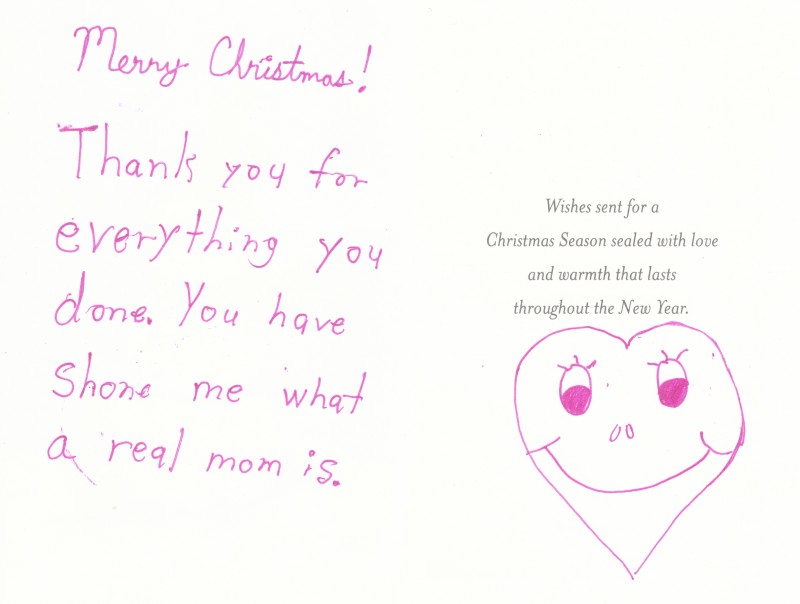 Merry Christmas!
Thank you for
everything you
done. You have
Shone me what
a real mom is.
Wishes sent for a
Christmas Season sealed with love
and warmth that lasts
throughout the New Year.